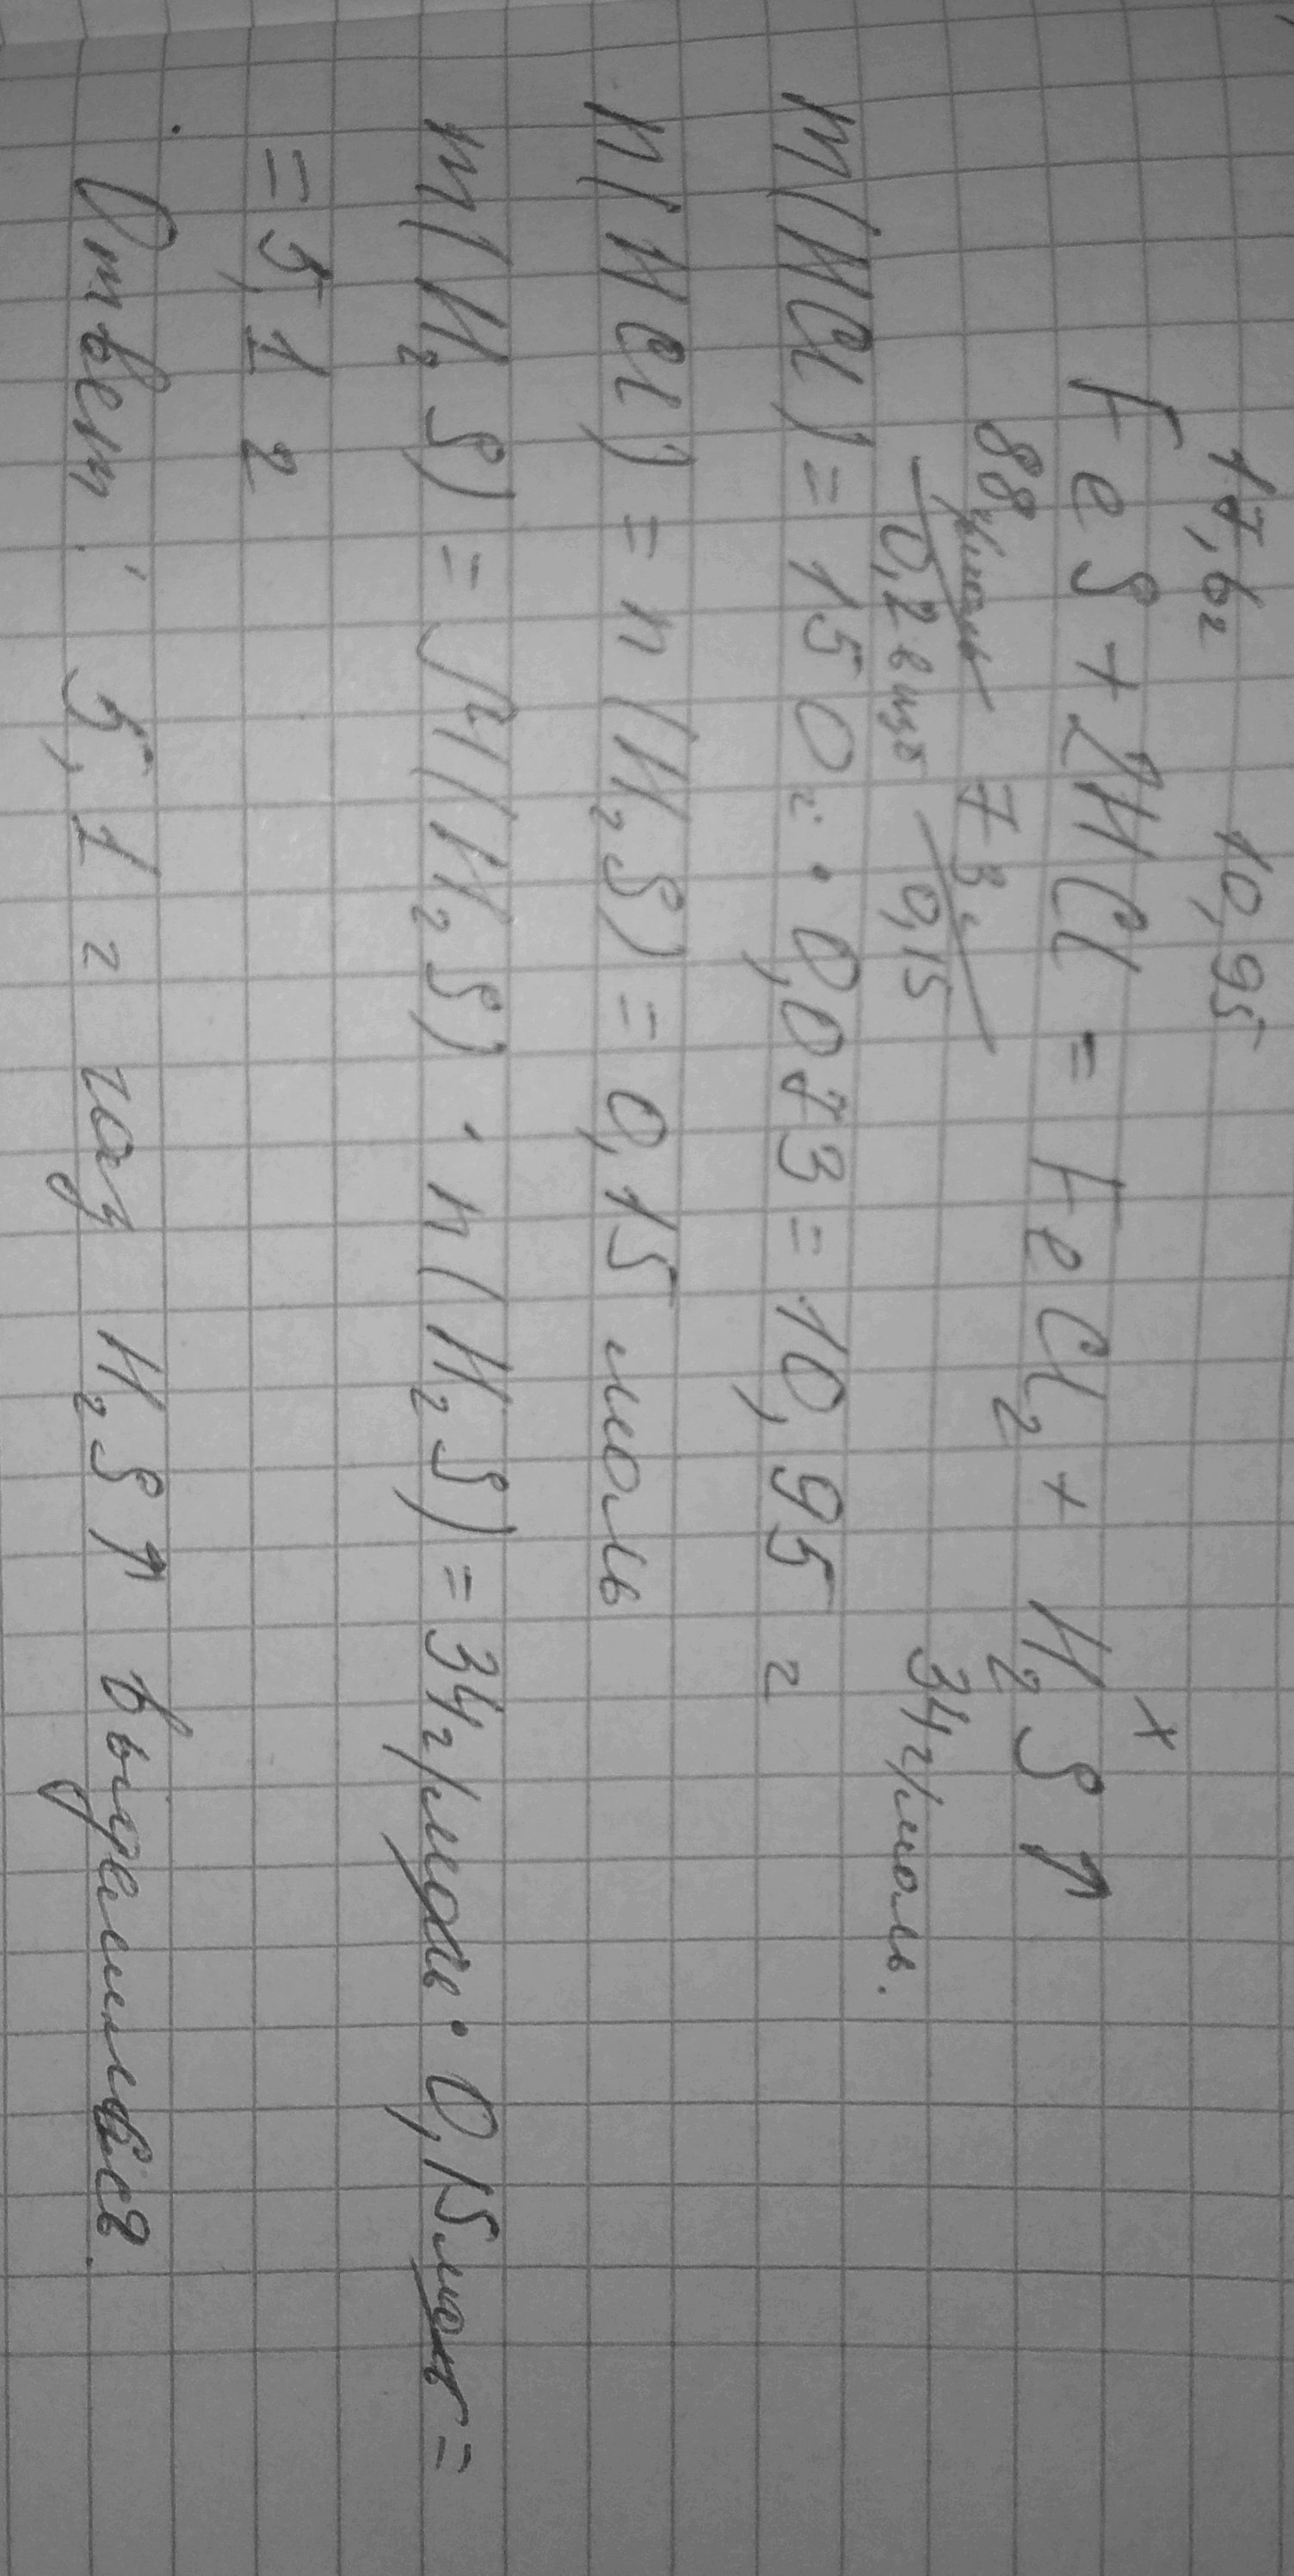 17,6г 10,95 x
FeS + 2HCl = FeCl₂ + H₂S↑
88г/моль 73г 34г/моль.
0,2 визб 0,15
m(HCl) = 150г · 0,073 = 10,95 г
n(HCl) = n(H₂S) = 0,15 моль
m(H₂S) = M(H₂S) · n(H₂S) = 34г/моль · 0,15моль =
= 5,1 г
Ответ: 5,1 г газ H₂S↑ выделилься.